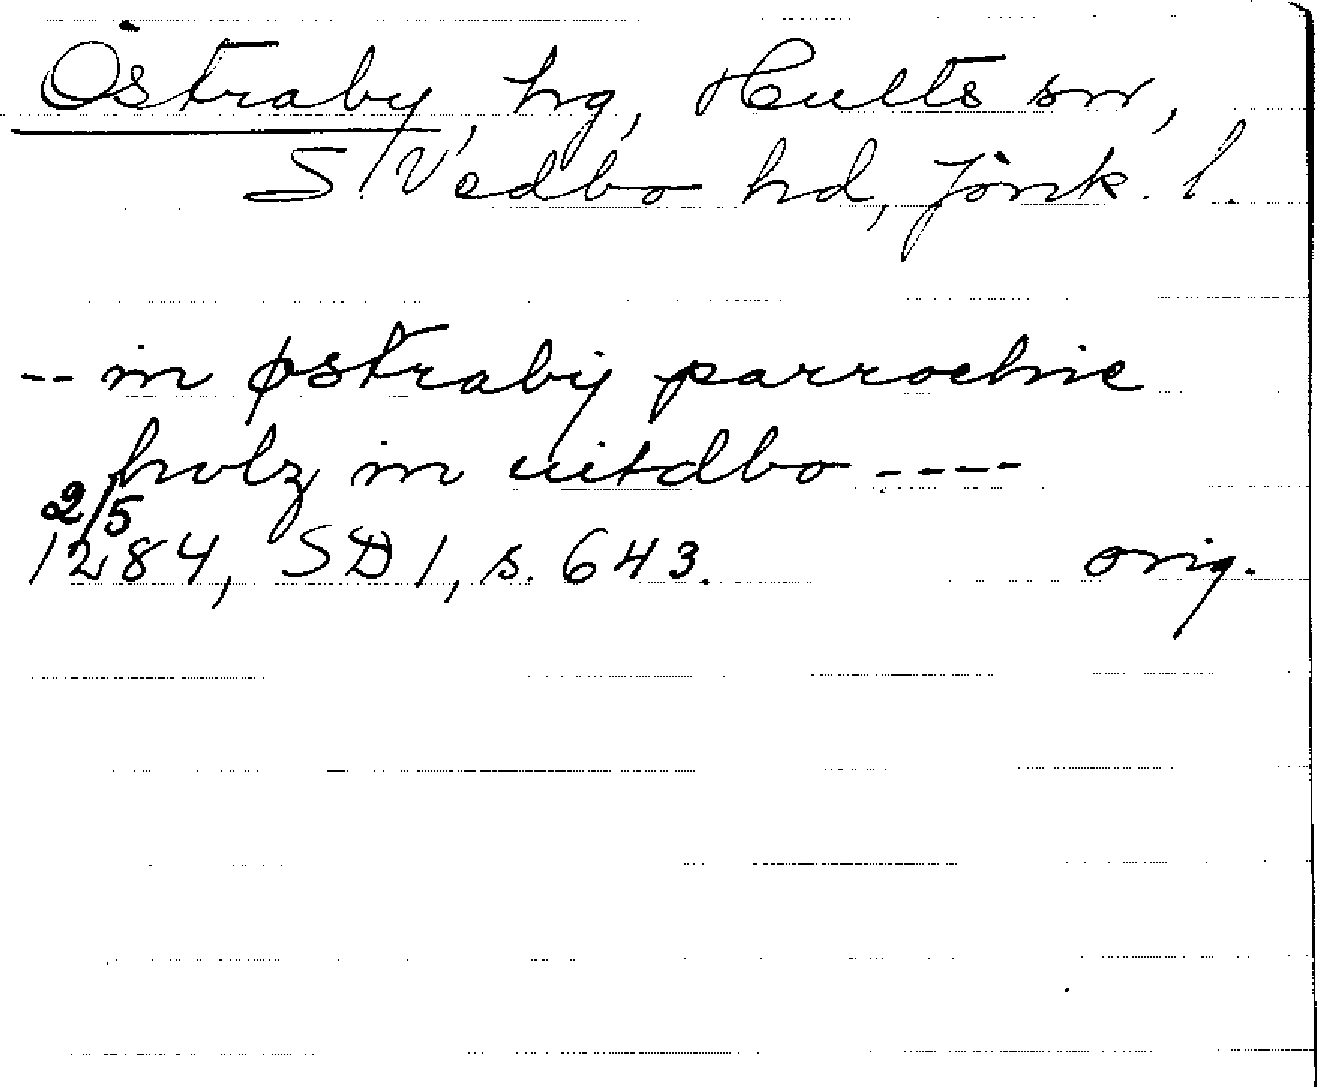 Östraby, hg, Hults sn,
S Vedbo hd, Jönk. l.
-- in østraby parrochie
hvlz in uitdbo ----
2/5
1284, SD 1, s. 643. orig.